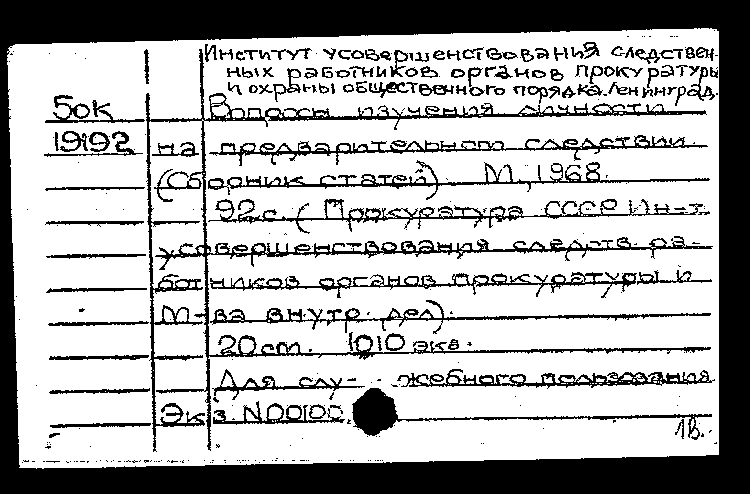 Институт усовершенствования следствен-
ных работников органов прокуратуры
и охраны общественного порядка. Ленинград.
5ок Вопросы изучения личности
19192 на предварительном следствии.
(Сборник статей). М., 1968.
92 с. (Прокуратура СССР Ин-т
усовершенствования следств. ра-
ботников органов прокуратуры и
М-ва внутр. дел).
20 см. 1010 экз.
Для слу- жебного пользования
Экз. N00100.
1В.